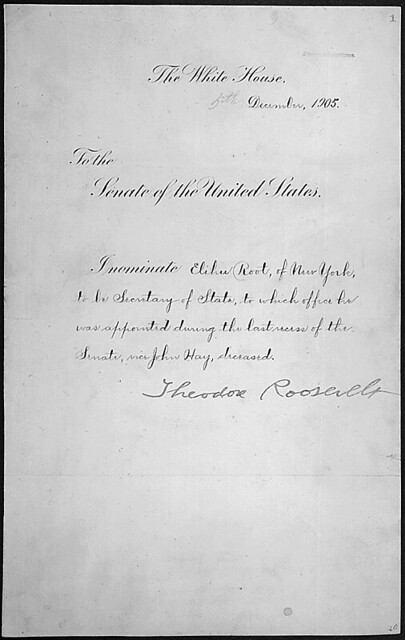 1
The White House,
5th December, 1905.
To the
Senate of the United States.
I nominate Elihu Root, of New York,
to be Secretary of State, to which office he
was appointed during the last recess of the
Senate, vice John Hay, deceased.
Theodore Roosevelt